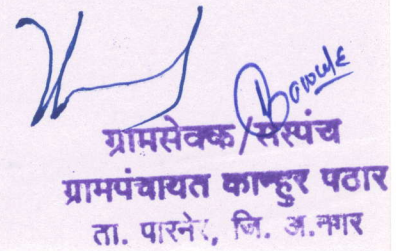 ग्रामसेवक/सरपंच
ग्रामपंचायत कान्हुर पठार
ता. पारनेर, जि. अ.नगर